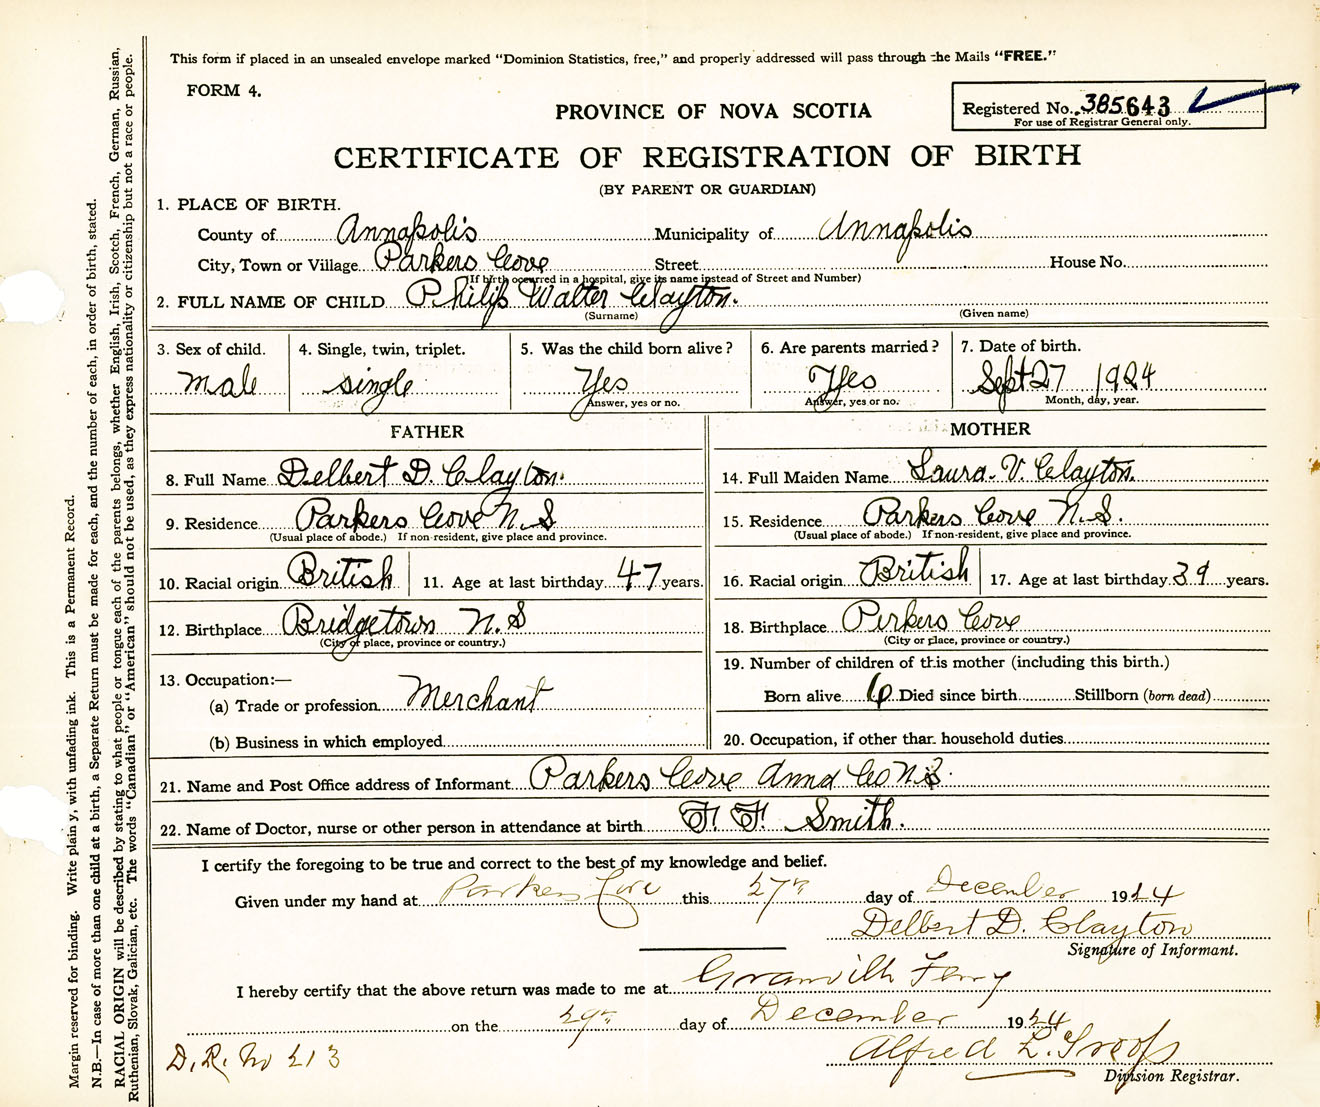 This form if placed in an unsealed envelope marked "Dominion Statistics, free," and properly addressed will pass through the Mails "FREE."
FORM 4.
PROVINCE OF NOVA SCOTIA
Registered No. 385643
For use of Registrar General only.
CERTIFICATE OF REGISTRATION OF BIRTH
(BY PARENT OR GUARDIAN)
1. PLACE OF BIRTH.
County of Annapolis Municipality of Annapolis
City, Town or Village Parkers Cove Street House No.
(If birth occurred in a hospital, give its name instead of Street and Number)
2. FULL NAME OF CHILD Philip Walter Clayton.
(Surname) (Given name)
3. Sex of child. 4. Single, twin, triplet. 5. Was the child born alive? 6. Are parents married? 7. Date of birth.
male single Yes Yes Sept 27 1924
Answer, yes or no. Answer, yes or no. Month, day, year.
FATHER
8. Full Name Delbert D. Clayton.
9. Residence Parkers Cove N.S
(Usual place of abode.) If non-resident, give place and province.
10. Racial origin British 11. Age at last birthday 47 years.
12. Birthplace Bridgetown N.S
(City or place, province or country.)
13. Occupation:—
(a) Trade or profession Merchant
(b) Business in which employed
MOTHER
14. Full Maiden Name Laura. V. Clayton.
15. Residence Parkers Cove N.S.
(Usual place of abode.) If non-resident, give place and province.
16. Racial origin British 17. Age at last birthday 39 years.
18. Birthplace Perkers Cove
(City or place, province or country.)
19. Number of children of this mother (including this birth.)
Born alive 6 Died since birth Stillborn (born dead)
20. Occupation, if other than household duties
21. Name and Post Office address of Informant Parkers Cove Anna Co N.S.
22. Name of Doctor, nurse or other person in attendance at birth F. F. Smith.
I certify the foregoing to be true and correct to the best of my knowledge and belief.
Given under my hand at Parkers Cove this 27th day of December 1924
Delbert D. Clayton
Signature of Informant.
I hereby certify that the above return was made to me at Granville Ferry
on the 29th day of December 1924
Alfred L. Troop
Division Registrar.
D. R. No 213
Margin reserved for binding. Write plainly, with unfading ink. This is a Permanent Record.
N.B.—In case of more than one child at a birth, a Separate Return must be made for each, and the number of each, in order of birth, stated.
RACIAL ORIGIN will be described by stating to what people or tongue each of the parents belongs, whether English, Irish, Scotch, French, German, Russian,
Ruthenian, Slovak, Galician, etc. The words "Canadian" or "American" should not be used, as they express nationality or citizenship but not a race or people.